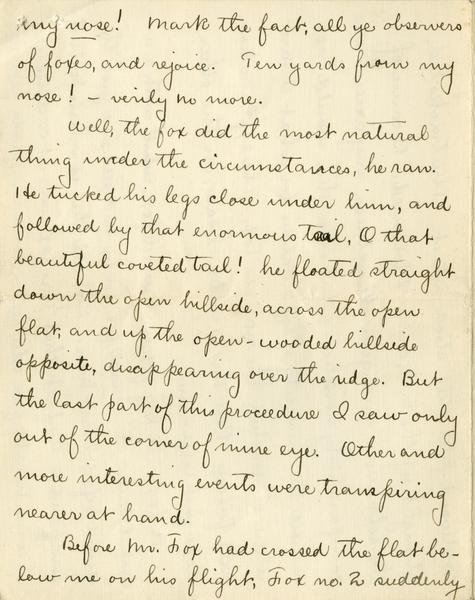 my nose! Mark the fact, all ye observers
of foxes, and rejoice. Ten yards from my
nose! - verily no more.
Well, the fox did the most natural
thing under the circumstances, he ran.
He tucked his legs close under him, and
followed by that enormous tail, O that
beautiful coveted tail! he floated straight
down the open hillside, across the open
flat, and up the open-wooded hillside
opposite, disappearing over the ridge. But
the last part of this proceedure I saw only
out of the corner of mine eye. Other and
more interesting events were transpiring
nearer at hand.
Before Mr. Fox had crossed the flat be-
low me on his flight, Fox no. 2 suddenly